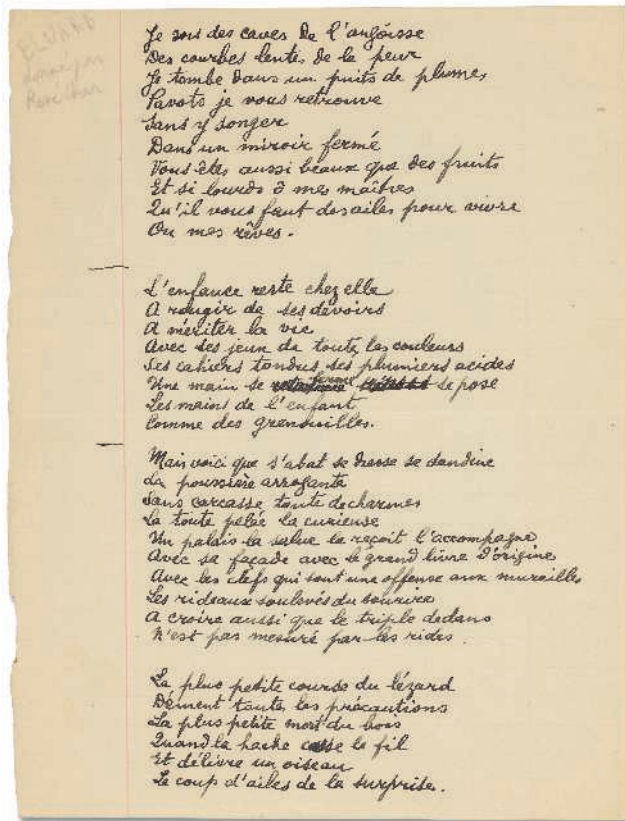 ELUARD
donné par
Je sors des caves de l'angoisse
Des courbes lentes de la peur
Je tombe dans un puits de plumes
Pavots je vous retrouve
Sans y songer
Dans un miroir fermé
Vous êtes aussi beaux que des fruits
Et si lourds ô mes maîtres
Qu'il vous faut des ailes pour vivre
Ou mes rêves.
L'enfance reste chez elle
A rougir de ses devoirs
A mériter la vie
Avec des jeux de toutes les couleurs
Ses cahiers tondus ses plumiers acides
Une main se ferme se pose
Les mains de l'enfant
Comme des grenouilles.
Mais voici que s'abat se dresse se dandine
La poussière arrogante
Sans carcasse toute de charmes
La toute pelée la curieuse
Un palais la salue la reçoit l'accompagne
Avec sa façade avec le grand livre d'origine
Avec les clefs qui sont une offense aux murailles
Les rideaux soulevés du sourire
A croire aussi que le triple dedans
N'est pas mesuré par les rides.
La plus petite course du lézard
Dément toutes les précautions
La plus petite mort du bois
Quand la hache casse le fil
Et délivre un oiseau
Le coup d'ailes de la surprise.